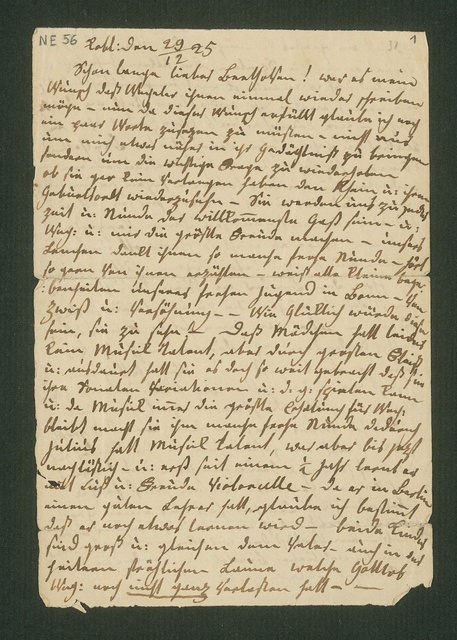 NE 56
1
Cobl: den 29/12 25
Schon lange lieber Beethoven! war es mein
Wunsch daß Wegeler ihnen einmal wieder schreiben
möge – nun da dieser Wunsch erfüllt glaube ich noch
ein paar Worte zusezen zu müssen – nicht nur
um mich etwas näher in ihr Gedächtniß zu bringen
sondern um die wichtige Frage zu wiederhohlen
ob sie gar kein Verlangen haben den Rhein u: ihren
Geburtsort wiederzusehn – Sie werden uns zu jeder
Zeit u: Stunde der willkommenste Gast sein – u:
Weg: u: mir die größte Freude machen – unser
Lenchen dankt ihnen so manche frohe Stunde – hört
so gern von ihnen erzählen – weiß alle kleine Bege-
benheiten unserer frohen Jugend in Bonn – von
Zwist u: Versöhnung – – Wie Glücklich würde diese
sein, sie zu sehn! – Das Mädchen hatt leider
kein Musick talent, aber durch großen Fleiß
u: ausdauer hatt sie es doch so weit gebracht daß sie
ihre Sonaten Variationen u: d: g: spielen kann
u: da Musick immer die größte Erholung für Weg:
bleibt macht sie ihm manche frohe Stunde dadurch
Julius hatt Musick talent, war aber bis jetzt
nachläßig – u: erst seit einem ½ Jahr lernt er
mit Lust u: Freude Violoncelle – da er in Berlin
einen guten Lehrer hatt, glaube ich bestimmt
daß er noch etwas lernen wird – beide Kinder
sind groß u: gleichen dem Vater – auch in der
heitern fröhlichen Laune welche Gottlob
Weg: noch nicht ganz verlassen hatt – –